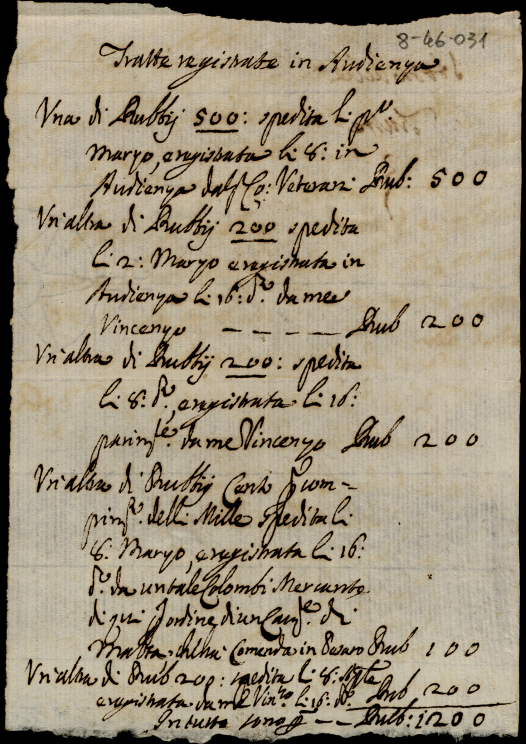 8-46-031
Tratte registrate in Audienza
Vna di Rubbij 500: spedita li p.º
Marzo, e registrata li 8: in
Audienza dal Co: Veterani Rub: 500
Vn'altra di Rubbij 200 spedita
li 2: Marzo e registrata in
Audienza li 16: d.º da me
Vincenzo - - - - - Rub 200
Vn'altra di Rubbij 200: spedita
li 8: d.º, e registrata li 16:
parim.te da me Vincenzo Rub 200
Vn'altra di Rubbij Cento p com-
pim.to delli Mille spedita li
8: Marzo, e registrata li 16:
d.º da un tale Colombi Mercante
di qui d'ordine di un Cau.re di
Malta ch'ha Comenda in Pesaro Rub 100
Vn'altra di Rub 200: spedita li 8:
e registrata da me Vin.zo li 16: d.º Rub 200
In tutto sono - - Rub: 1200